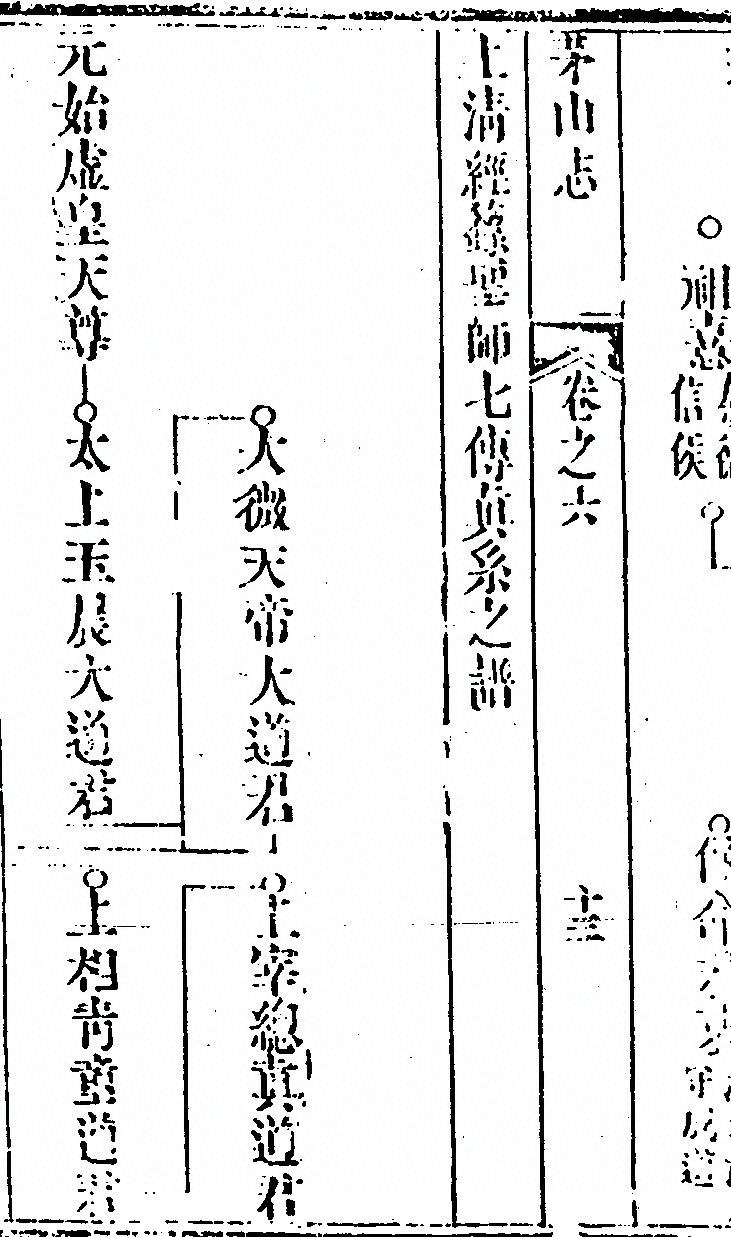 茅山志 卷之六 十三
上清經籙聖師七傳真系之譜
太微天帝大道君 上宰總真道君
元始虛皇天尊 太上玉晨大道君 上相青童道君